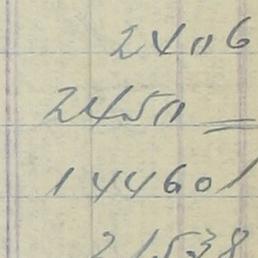 2406
2450 =
144601
21538